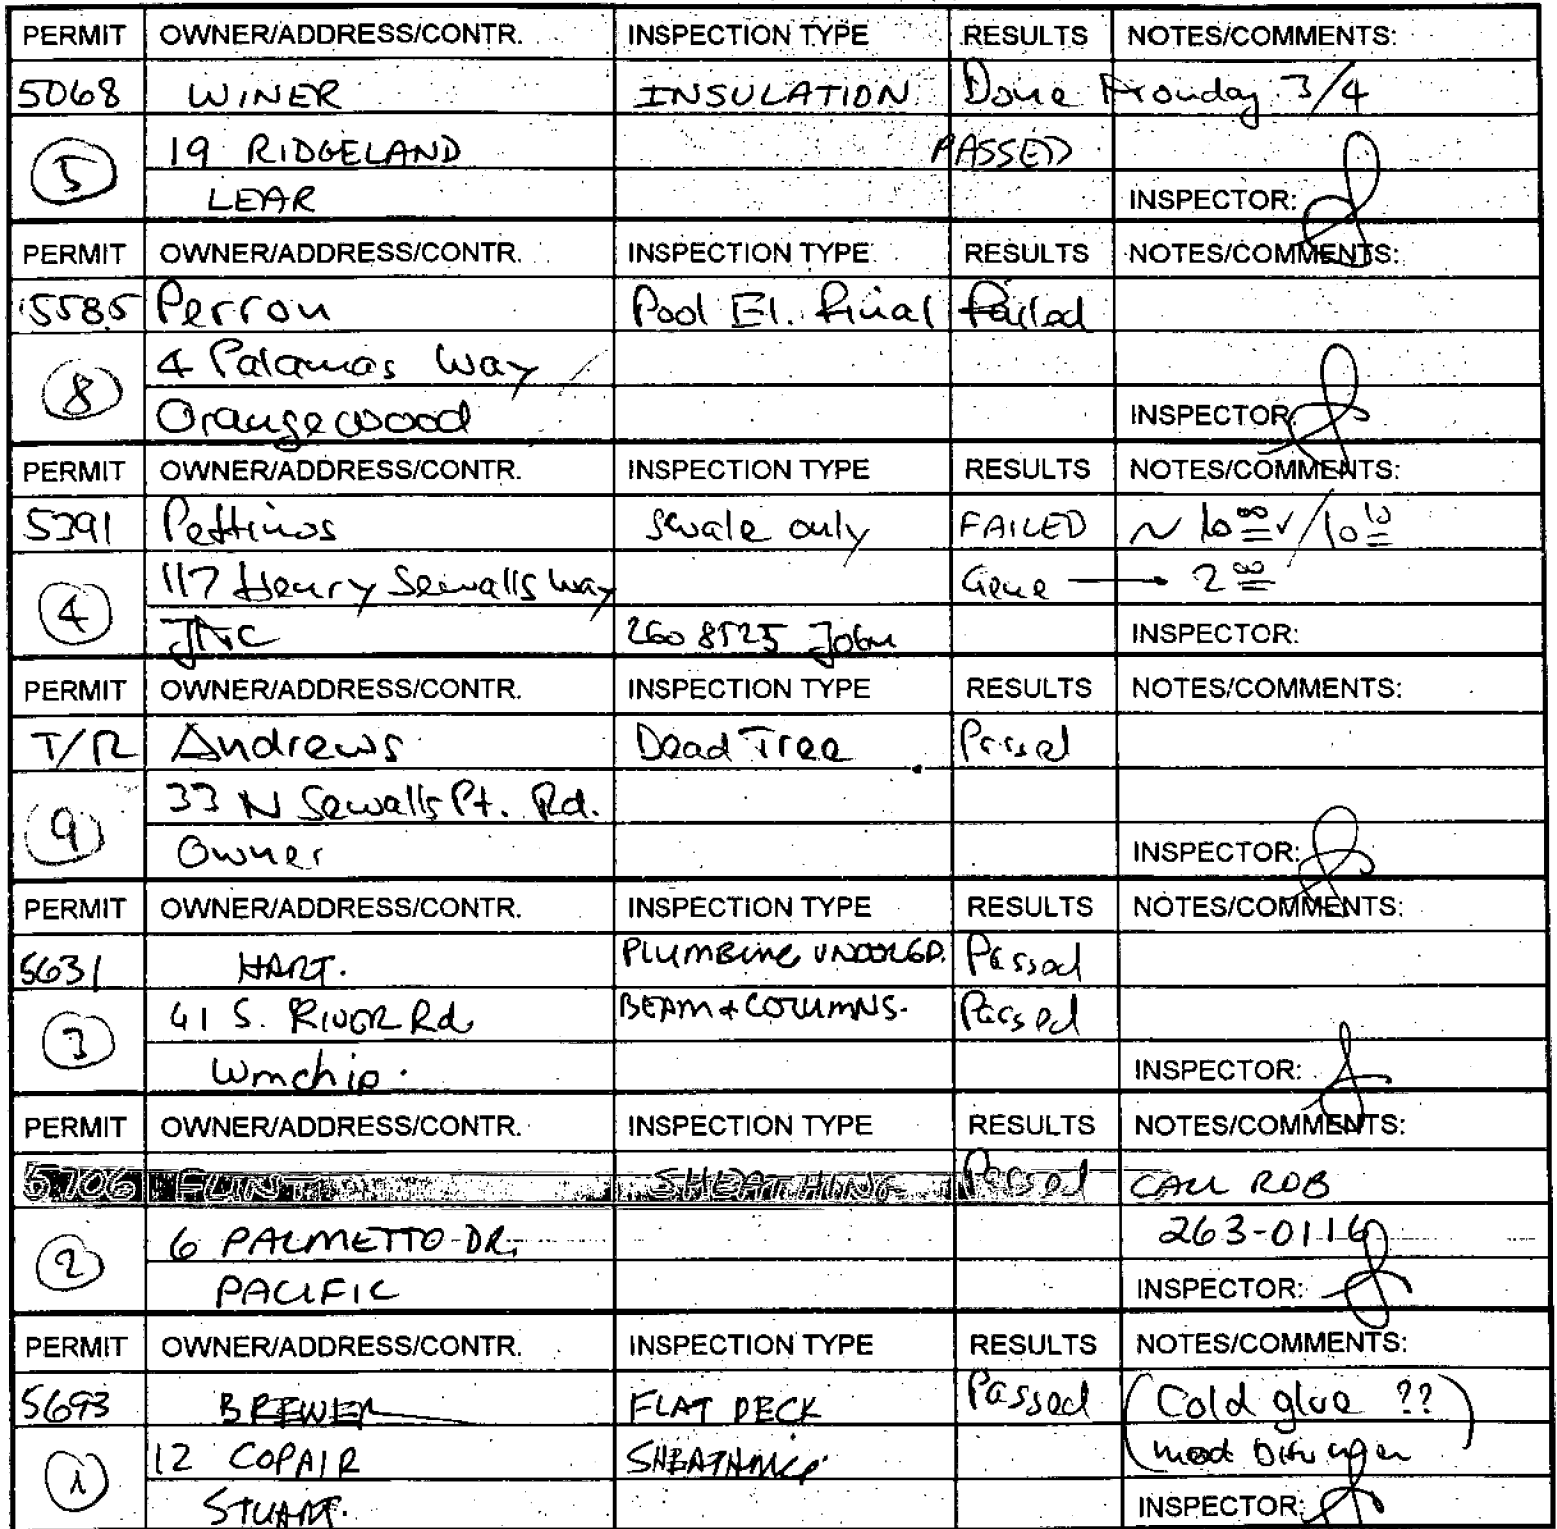 PERMIT OWNER/ADDRESS/CONTR. INSPECTION TYPE RESULTS NOTES/COMMENTS:
5068 WINER INSULATION Done Monday 3/4
5 19 RIDGELAND PASSED
LEAR INSPECTOR:
PERMIT OWNER/ADDRESS/CONTR. INSPECTION TYPE RESULTS NOTES/COMMENTS:
5585 Perron Pool El. final Failed
8 4 Palamas Way
Orangewood INSPECTOR
PERMIT OWNER/ADDRESS/CONTR. INSPECTION TYPE RESULTS NOTES/COMMENTS:
5391 Pettinos Swale only FAILED ~ 10 00 ✓ / 10 10
4 117 Henry Sewalls Way Gene → 2 00
260 8525 John INSPECTOR:
PERMIT OWNER/ADDRESS/CONTR. INSPECTION TYPE RESULTS NOTES/COMMENTS:
T/R Andrews Dead Tree Passed
9 33 N Sewalls Pt. Rd.
Owner INSPECTOR:
PERMIT OWNER/ADDRESS/CONTR. INSPECTION TYPE RESULTS NOTES/COMMENTS:
5631 HART. PLUMBING UNDERGD. Passed
3 41 S. RIVER Rd BEAM + COLUMNS. Passed
Wmchip. INSPECTOR:
PERMIT OWNER/ADDRESS/CONTR. INSPECTION TYPE RESULTS NOTES/COMMENTS:
5706 FLINT SHEATHING Passed CALL ROB
2 6 PALMETTO DR. 263-0116
PACIFIC INSPECTOR:
PERMIT OWNER/ADDRESS/CONTR. INSPECTION TYPE RESULTS NOTES/COMMENTS:
5693 BREWER FLAT DECK Passed (Cold glue ??)
1 12 COPAIR SHEATHING
STUART. INSPECTOR: